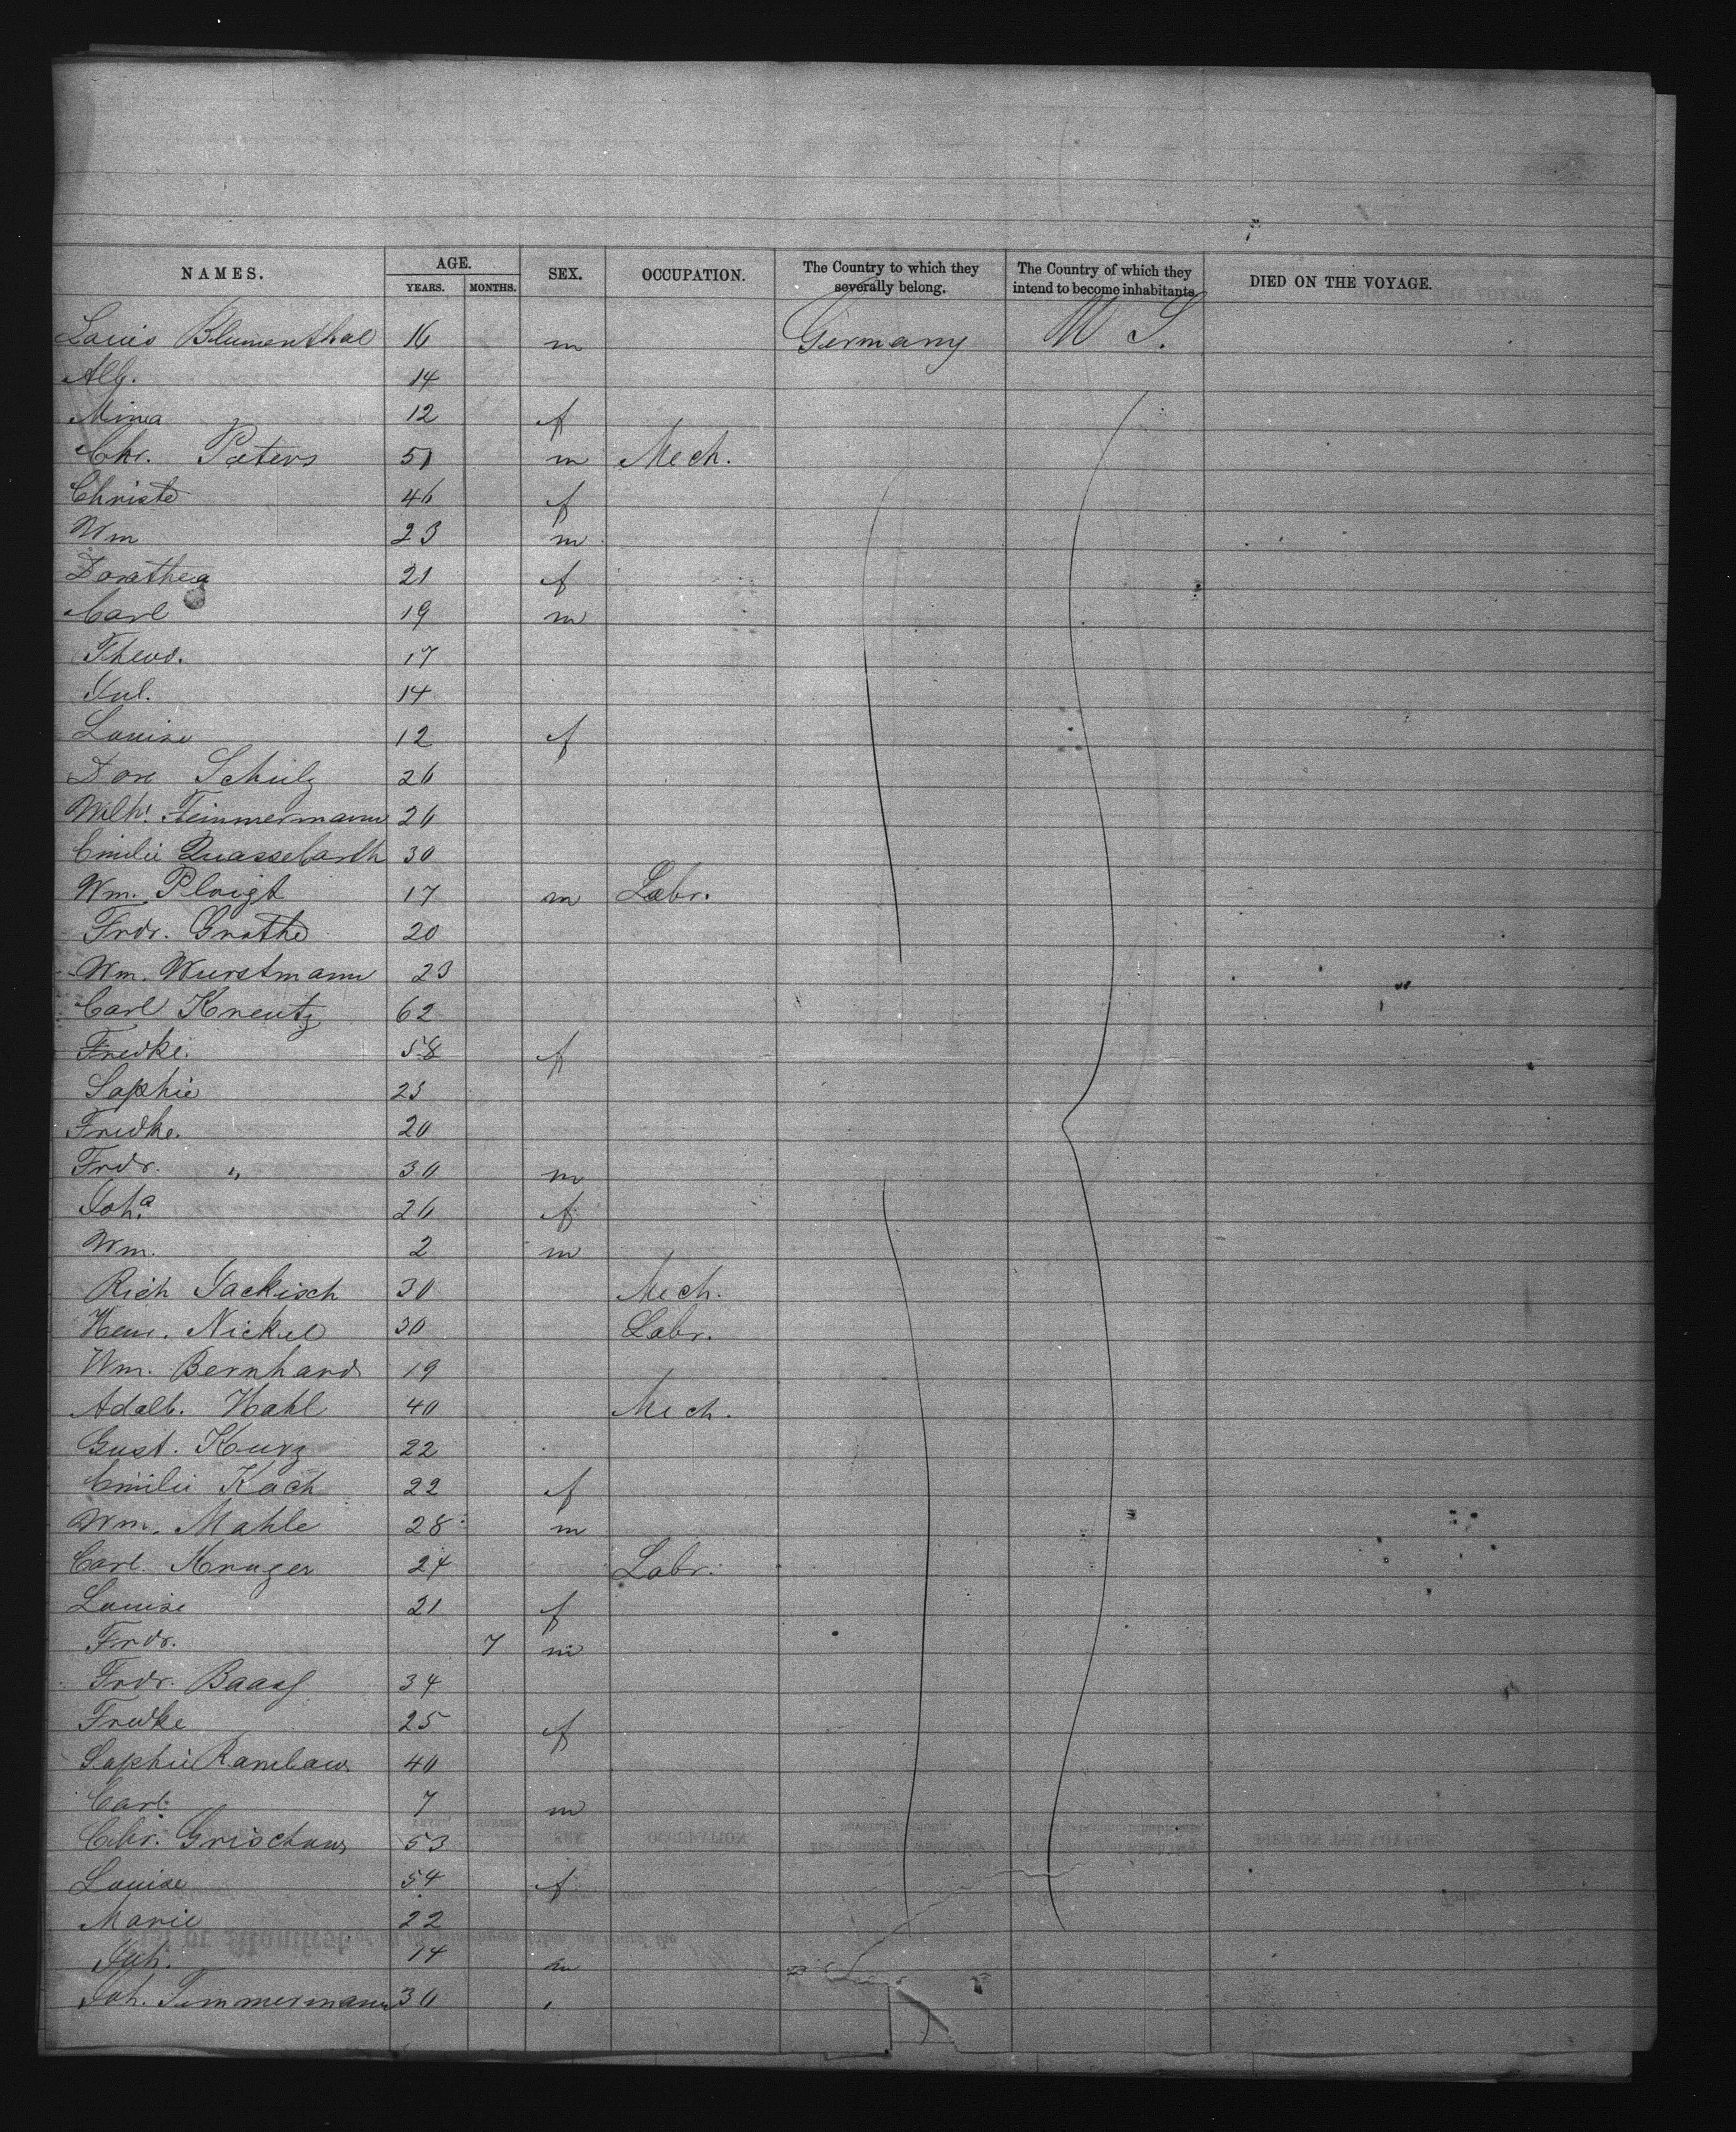 NAMES. AGE. SEX. OCCUPATION. The Country to which they severally belong. The Country of which they intend to become inhabitants. DIED ON THE VOYAGE.
YEARS. MONTHS.
Louis Blumenthal 16 m Germany U S.
Alb. 14
Mina 12 f
Chr. Peters 51 m Mech.
Christe 46 f
Wm 23 m
Dorathea 21 f
Carl 19 m
Theod. 17
Jul. 14
Louise 12 f
Dore Schulz 26
Wilh. Timmermann 26
Emilie Quassebarth 30
Wm. Ploigt 17 m Labr.
Frdr. Grothe 20
Wm. Wurstmann 23
Carl Kreutz 62
Fredke. 58 f
Sophie 25
Fredke. 20
Frdr. " 30 m
Joha. 26 f
Wm. 2 m
Rich Jackisch 30 Mech.
Henr. Nickel 30 Labr.
Wm. Bernhard 19
Adalb. Hahl 40 Mech.
Gust. Kurz 22
Emilie Koch 22 f
Wm. Mahle 28 m
Carl Kruger 24 Labr.
Louise 21 f
Frdr. 7 m
Frdr. Baass 34
Fredke 25 f
Sophie Rambow 40
Carl 7 m
Chr. Grischow 53
Louise 54 f
Marie 22
Joh. 14 m
Joh. Timmermann 30 "